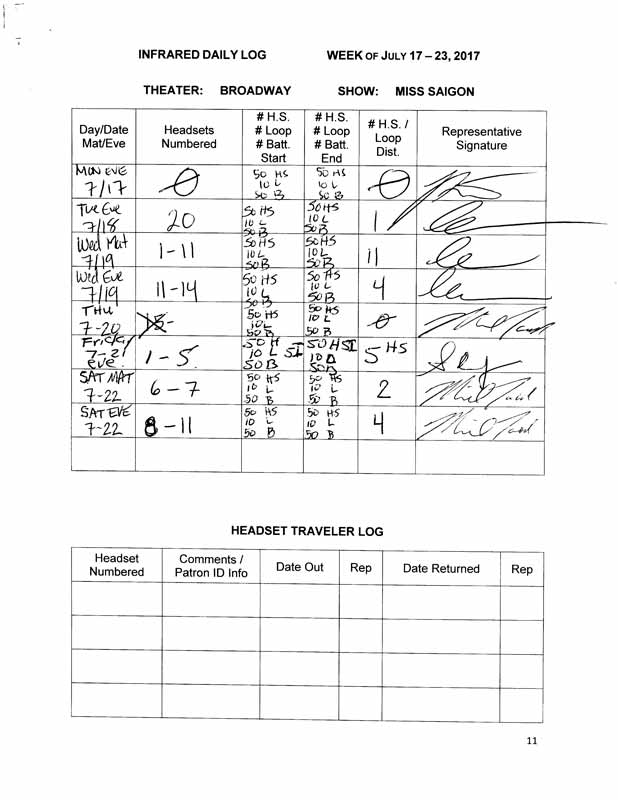 INFRARED DAILY LOG WEEK OF JULY 17 – 23, 2017
THEATER: BROADWAY SHOW: MISS SAIGON
Day/Date
Mat/Eve
Headsets
Numbered
# H.S.
# Loop
# Batt.
Start
# H.S.
# Loop
# Batt.
End
# H.S. /
Loop
Dist.
Representative
Signature
MON EVE
7/17
0
50 HS
10 L
50 B
50 HS
10 L
50 B
0
Tue Eve
7/18
20
50 HS
10 L
50 B
50 HS
10 L
50 B
1
Wed Mat
7/19
1-11
50 HS
10 L
50 B
50 HS
10 L
50 B
11
Wed Eve
7/19
11-14
50 HS
10 L
50 B
50 HS
10 L
50 B
4
THU
7-20
50 HS
10 L
50 B
50 HS
10 L
50 B
0
Friday
7-21
eve.
1-5
50 H
10 L SI
50 B
50 HSI
10
50B
5 HS
SAT MAT
7-22
6-7
50 HS
10 L
50 B
50 HS
10 L
50 B
2
SAT EVE
7-22
8-11
50 HS
10 L
50 B
50 HS
10 L
50 B
4
HEADSET TRAVELER LOG
Headset
Numbered
Comments /
Patron ID Info
Date Out
Rep
Date Returned
Rep
11